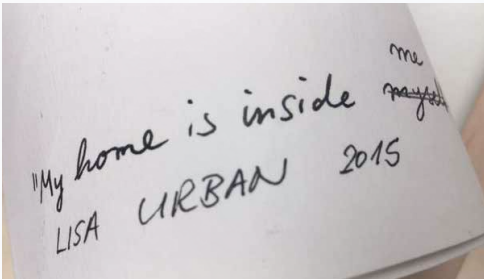 "My home is inside me
myself
LISA URBAN 2015